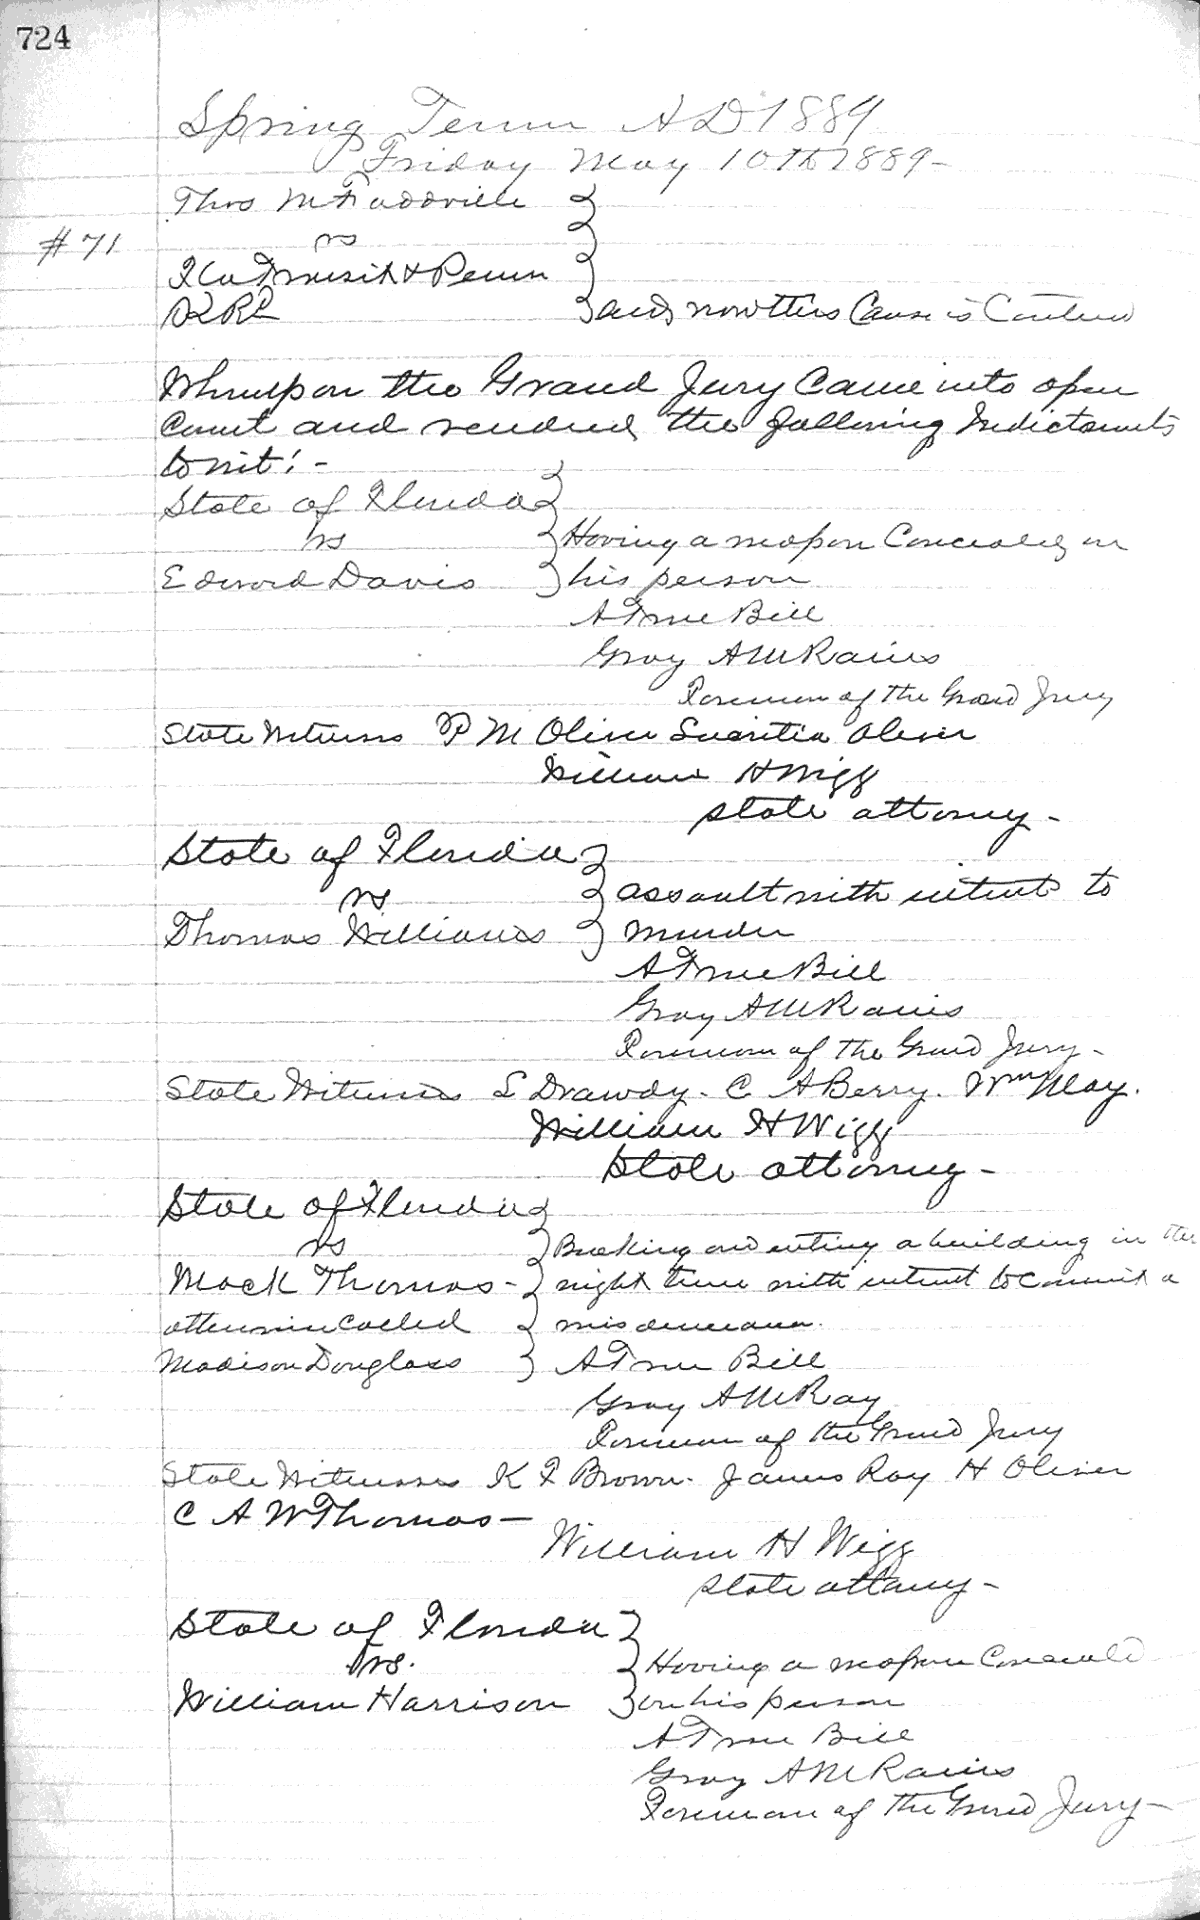 724
Spring Term AD 1889
Friday May 10th 1889-
Thos M
vs
#71
Fla Transit & Penn
RR
and now this Cause is Contend
Whereupon the Grand Jury Came into open
Court and rendred the following Indictments
towit: -
State of Florida
vs
Having a weapon Concealed on
Edward Davis
his person
A True Bill
Gray A McRains
Foreman of the Grand Jury
State Witness P M Oliver Oliver
William H Wigg
State attorney -
State of Florida
vs
assault with intent to
Thomas Williams
murder
A True Bill
Gray A McRains
Foreman of the Grand Jury -
State Witness S Drawdy. C A Berry. Wm May.
William H Wigg
State attorney -
State of Florida
vs
Breaking and enting a building in the
Mack Thomas -
night time with intent to commit a
otherwise Called
misdemeanor.
Madison Douglass
A True Bill
Gray A McRay
Foreman of the Grand Jury
State Witnesses K F Brown. James Ray H Oliver
C A W Thomas -
William H Wigg
State attorney -
State of Florida
vs.
Having a weapon Conceald
William Harrison
on his person
A True Bill
Gray A McRains
Foreman of the Grand Jury -